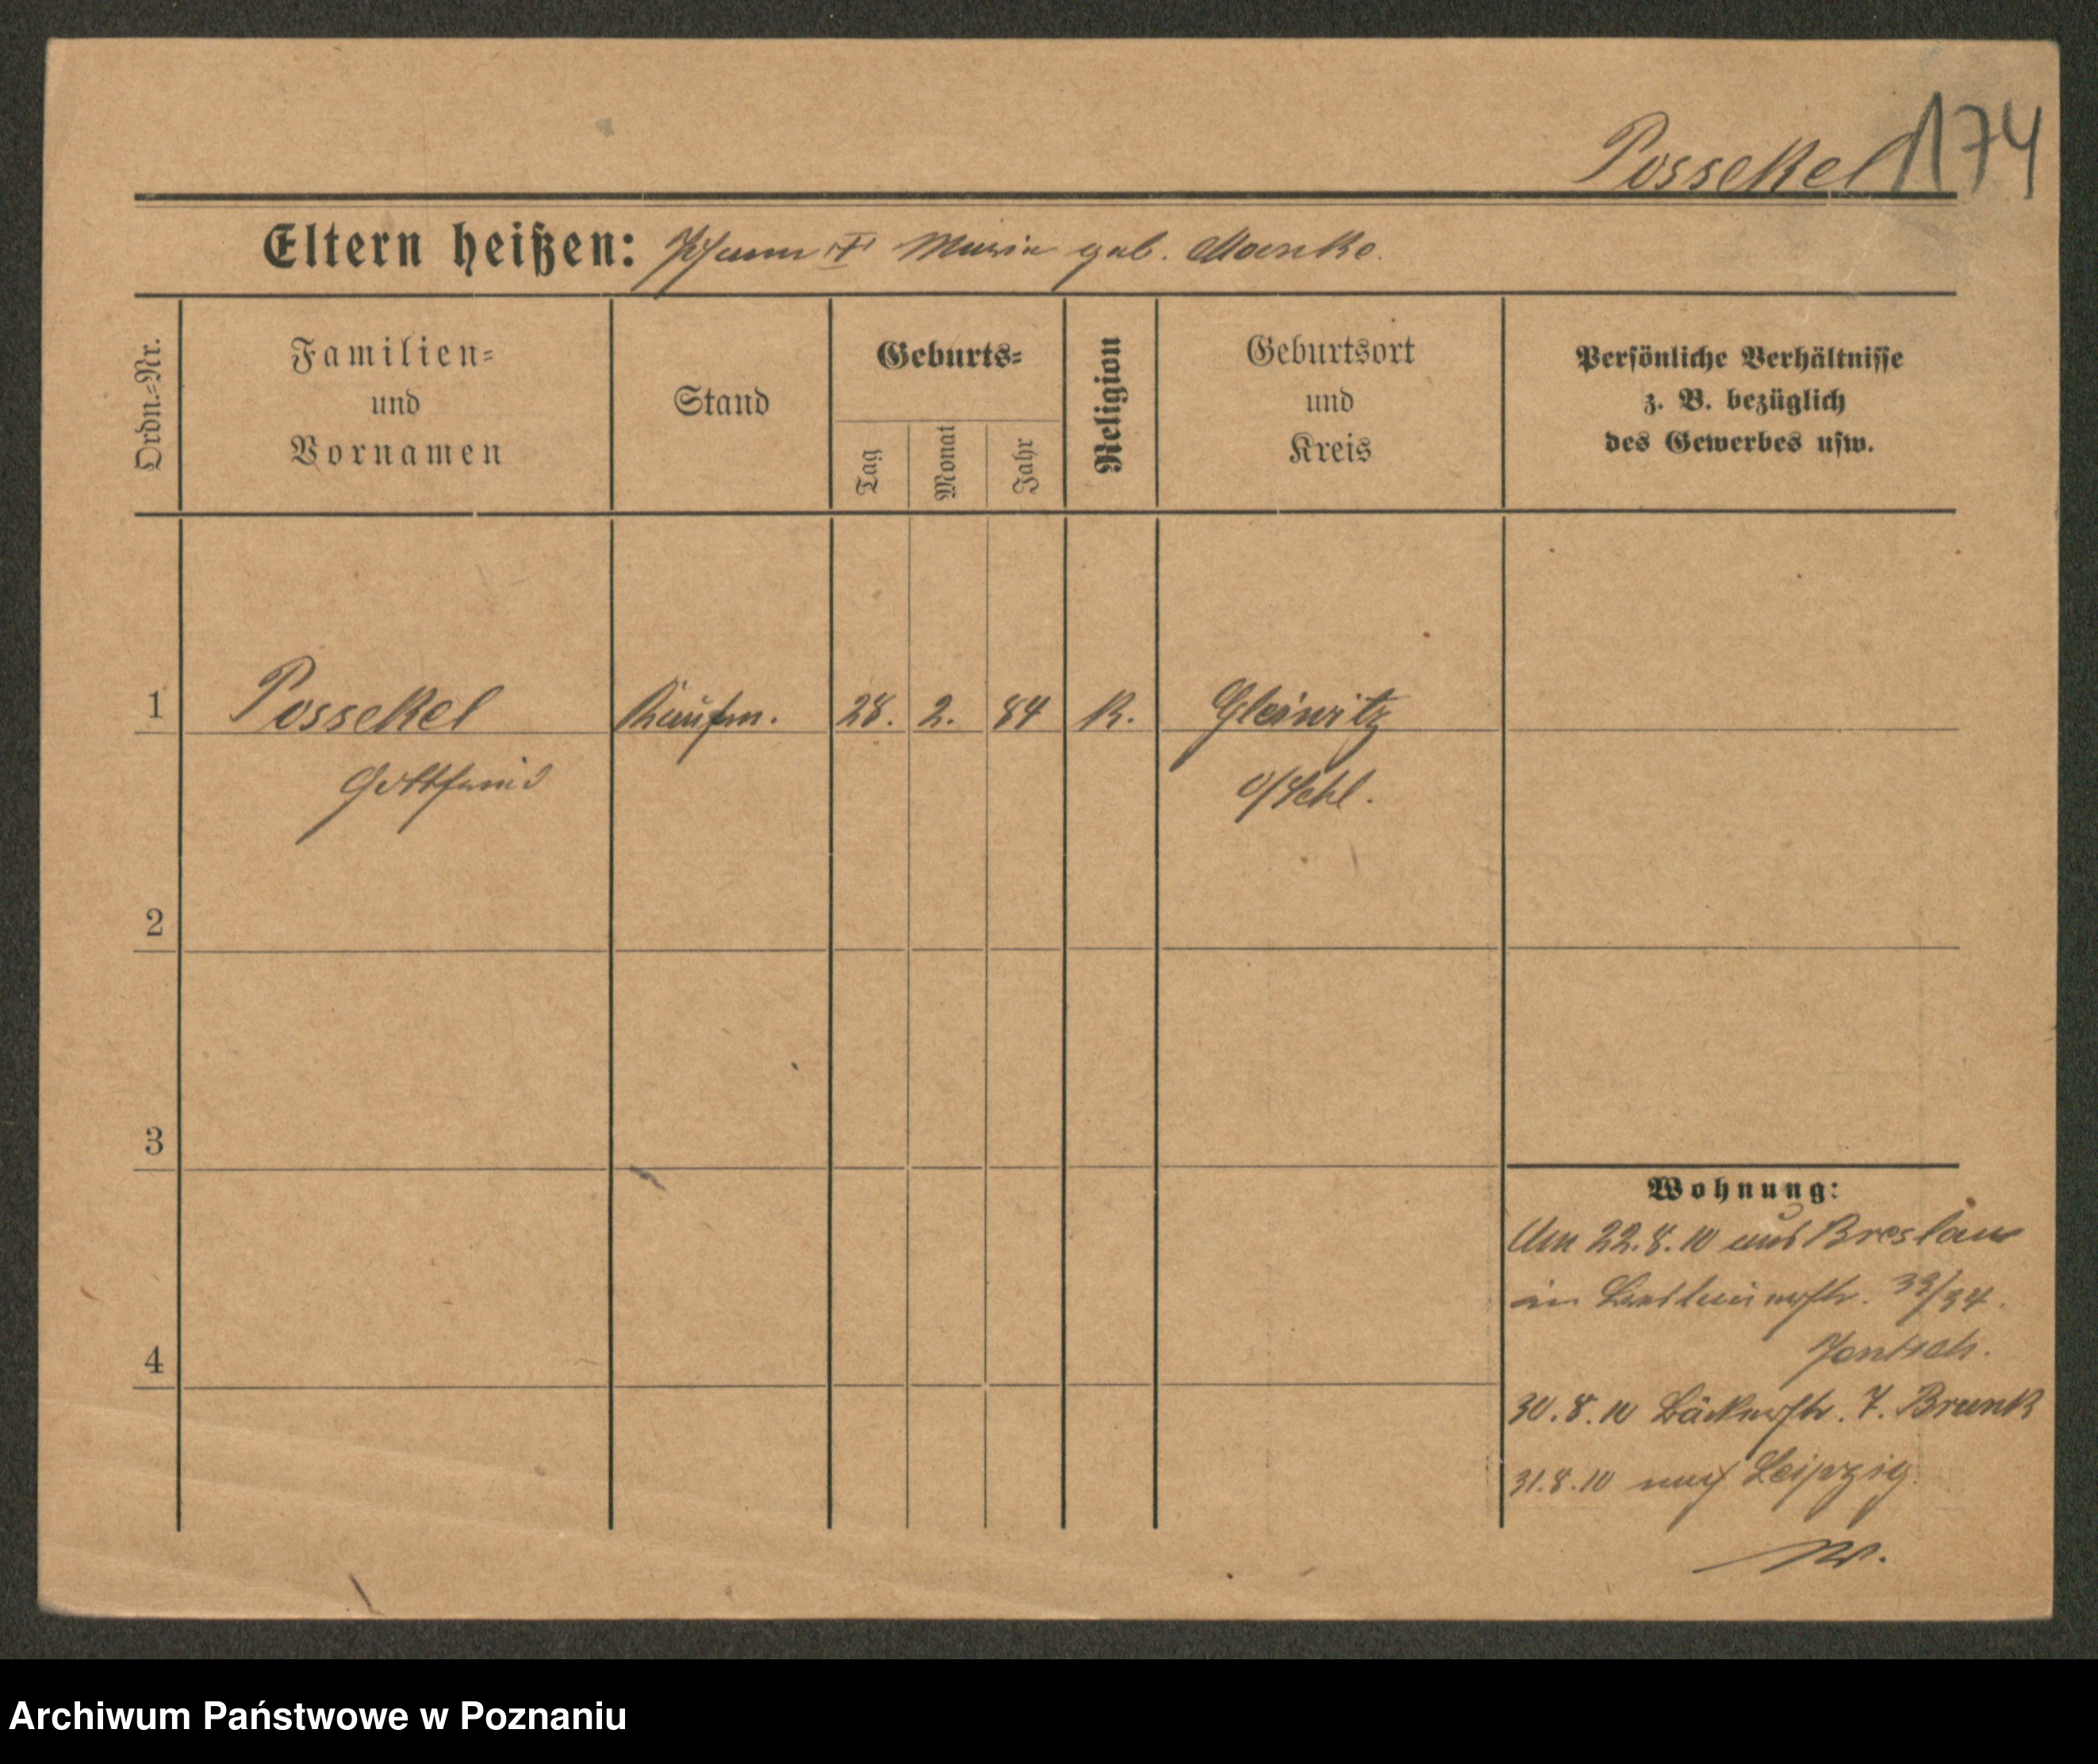 Possekel 174
Eltern heißen: Johann † Maria geb. Manke.
Ordn.-Nr.
Familien-
und
Vornamen
Stand
Geburts-
Tag
Monat
Jahr
Religion
Geburtsort
und
Kreis
Persönliche Verhältnisse
z. B. bezüglich
des Gewerbes usw.
1 Possekel Kaufm. 28. 2. 84 K. Gleiwitz
Gottfried O/Schl.
2
3
4
Wohnung:
Am 22.8.10 aus Breslau
in 33/34.
30.8.10 Bäckerstr. 7. Brunk
31.8.10 nach Leipzig.
Archiwum Państwowe w Poznaniu